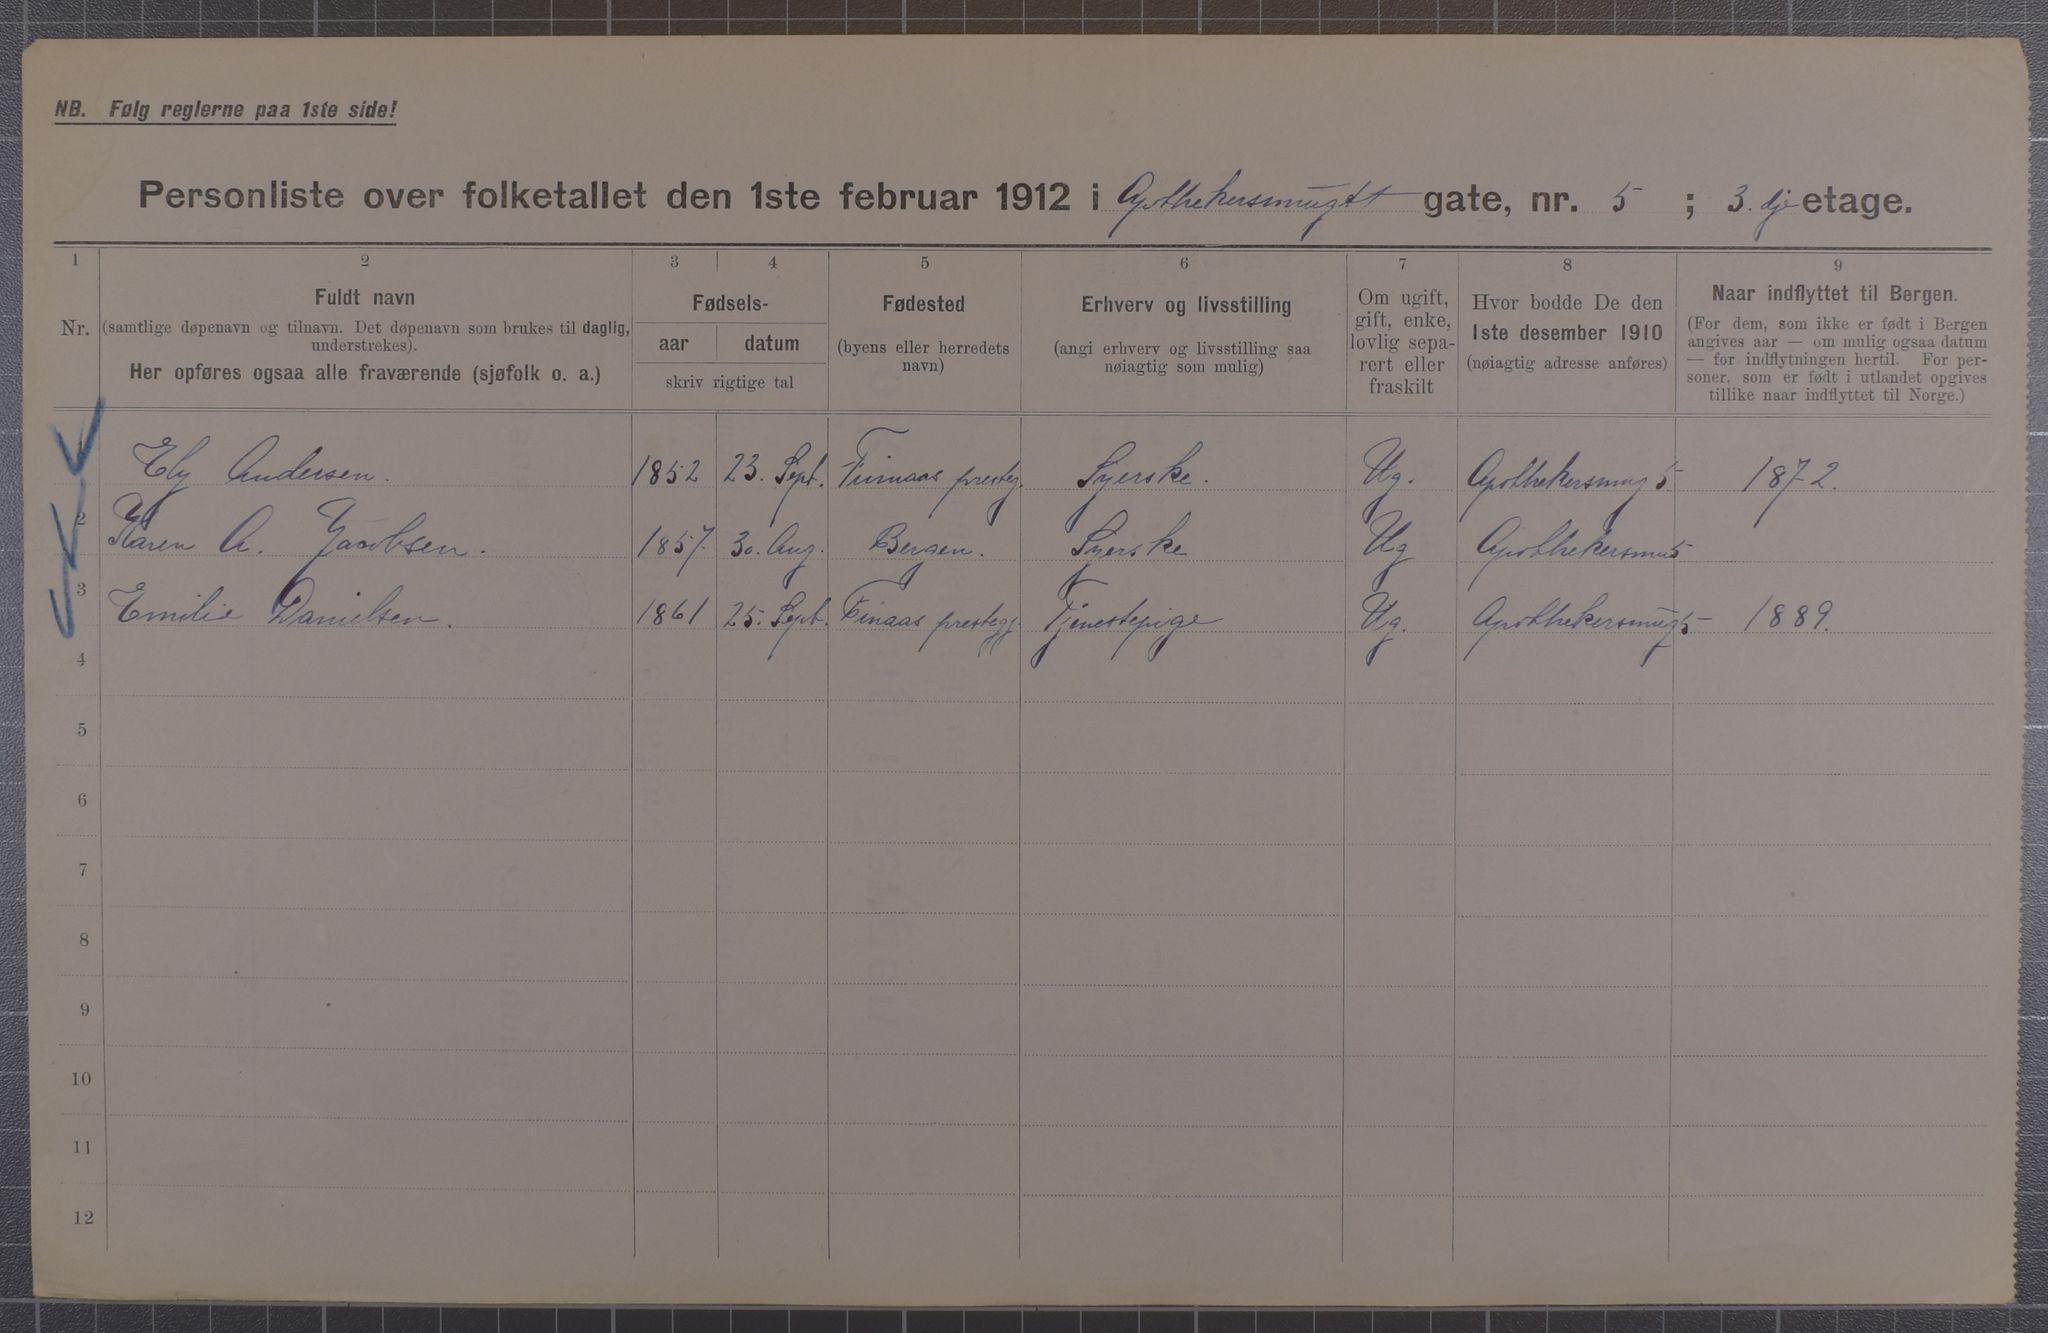 NB. Følg reglerne paa 1ste side!
Personliste over folketallet den 1ste februar 1912 i Apothekersmugdt gate, nr. 5 ; 3.dje etage.
1 2 3 4 5 6 7 8 9
Nr.
Fuldt navn
(samtlige døpenavn og tilnavn. Det døpenavn som brukes til daglig,
understrekes).
Her opføres ogsaa alle fraværende (sjøfolk o. a.)
Fødsels-
aar datum
skriv rigtige tal
Fødested
(byens eller herredets
navn)
Erhverv og livsstilling
(angi erhverv og livsstilling saa
nøiagtig som mulig)
Om ugift,
gift, enke,
lovlig sepa-
rert eller
fraskilt
Hvor bodde De den
1ste desember 1910
(nøiagtig adresse anføres)
Naar indflyttet til Bergen.
(For dem, som ikke er født i Bergen
angives aar — om mulig ogsaa datum
— for indflytningen hertil. For per-
soner, som er født i utlandet opgives
tillike naar indflyttet til Norge.)
Ely Andersen. 1852 23. Sept. Finnaas presteg. Syerske. Ug. Apothekersmug 5 1872.
2 Karen A. Jacobsen. 1857. 30. Aug. Bergen. Syerske Ug Apothekersmu 5
3 Emilie Danielsen. 1861 25. Sept. Finaas prestegj Tjenestepige Ug. Apothekersmug 5 1889.
4
5
6
7
8
9
10
11
12